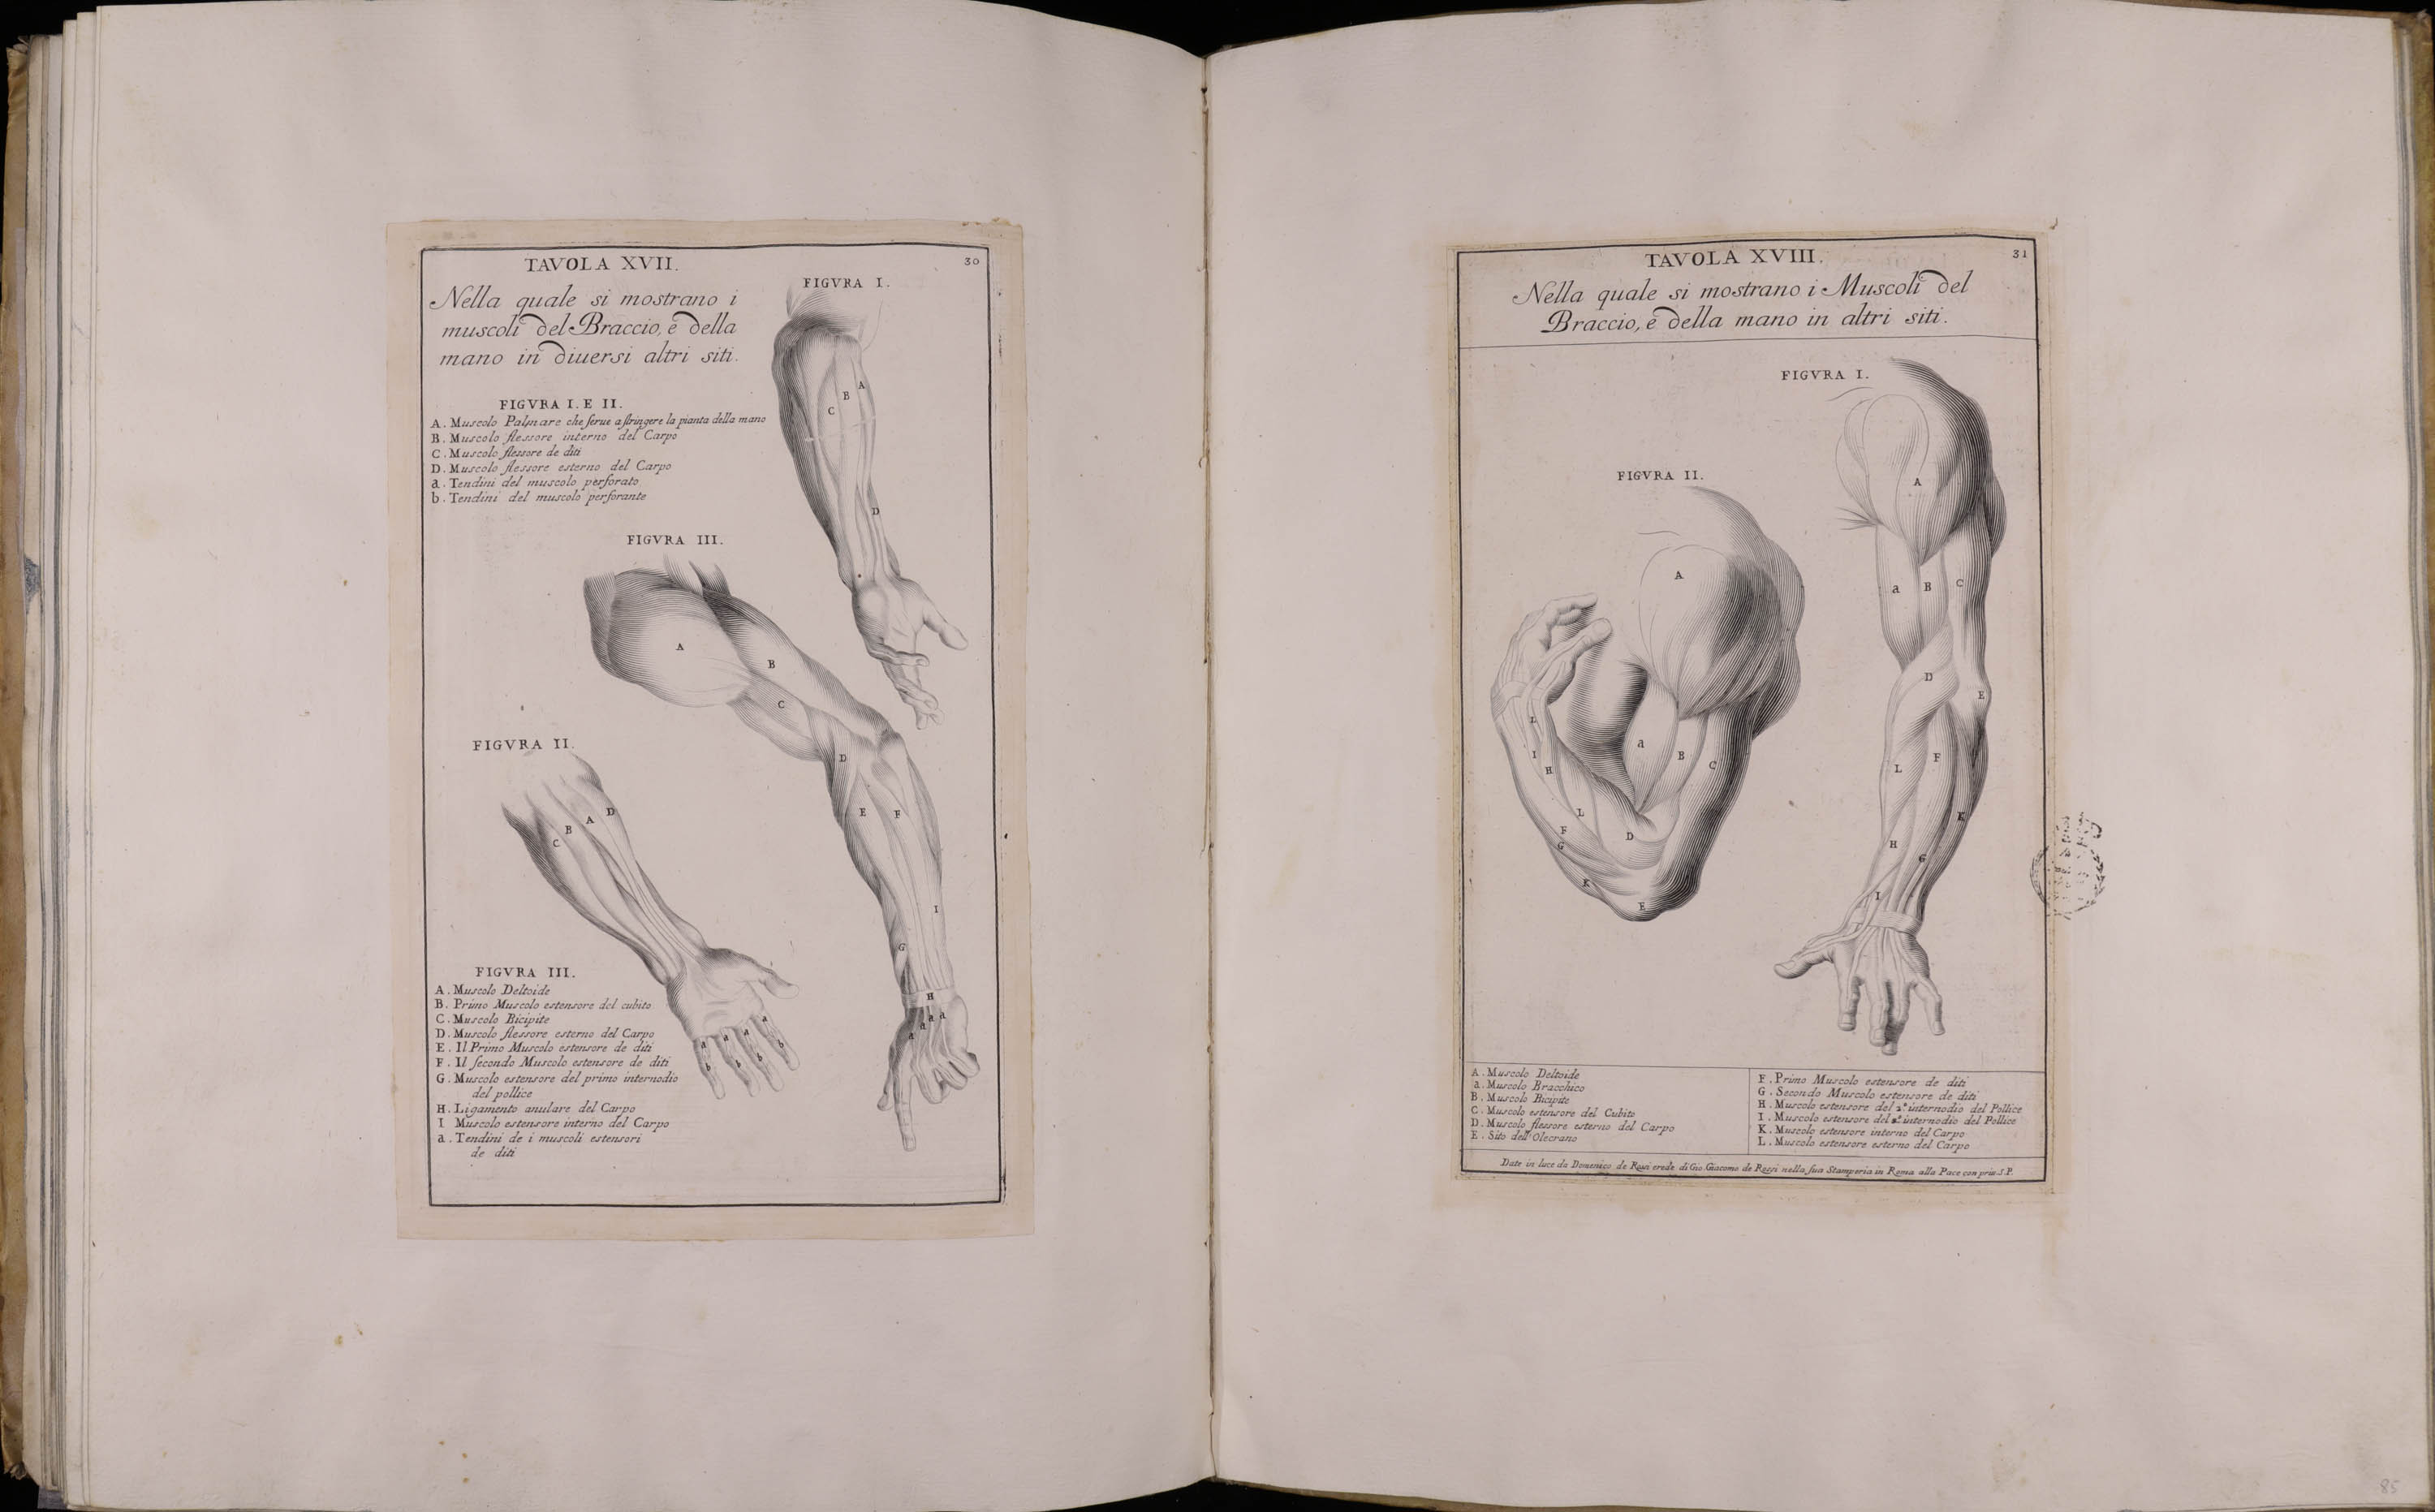 TAVOLA XVII.
30
Nella quale si mostrano i
muscoli del Braccio, e della
mano in diuersi altri siti.
FIGVRA I.
FIGVRA I. E II.
A. Muscolo Palmare che serue a stringere la pianta della mano
B. Muscolo flessore interno del Carpo
C. Muscolo flessore de diti
D. Muscolo flessore esterno del Carpo
a. Tendini del muscolo perforato
b. Tendini del muscolo perforante
A
B
C
D
FIGVRA III.
A
B
C
D
E
F
I
G
H
a
a
a
a
FIGVRA II.
D
A
B
C
a
a
a
a
b
b
b
b
FIGVRA III.
A. Muscolo Deltoide
B. Primo Muscolo estensore del cubito
C. Muscolo Bicipite
D. Muscolo flessore esterno del Carpo
E. Il Primo Muscolo estensore de diti
F. Il secondo Muscolo estensore de diti
G. Muscolo estensore del primo internodio
del pollice
H. Ligamento anulare del Carpo
I Muscolo estensore interno del Carpo
a. Tendini de i muscoli estensori
de diti
TAVOLA XVIII.
31
Nella quale si mostrano i Muscoli del
Braccio, e della mano in altri siti.
FIGVRA I.
A
a
B
C
D
E
F
L
K
H
G
I
FIGVRA II.
A
L
a
I
B
H
C
L
F
D
G
K
E
A. Muscolo Deltoide
a. Muscolo Bracchico
B. Muscolo Bicipite
C. Muscolo estensore del Cubito
D. Muscolo flessore esterno del Carpo
E. Sito dell'Olecrano
F. Primo Muscolo estensore de diti
G. Secondo Muscolo estensore de diti
H. Muscolo estensore del 2º internodio del Pollice
I. Muscolo estensore del internodio del Pollice
K. Muscolo estensore interno del Carpo
L. Muscolo estensore esterno del Carpo
Date in luce da Domenico de Rossi erede di Gio. Giacomo de Rossi nella sua Stamperia in Roma alla Pace con priu. S.P.
85